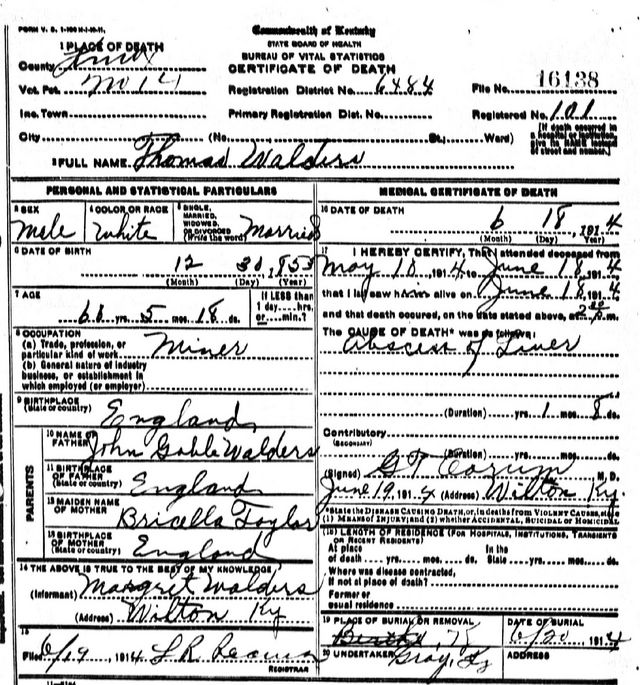 FORM V. S. 1-100 M-10-11.
Commonwealth of Kentucky
STATE BOARD OF HEALTH
BUREAU OF VITAL STATISTICS
CERTIFICATE OF DEATH
1 PLACE OF DEATH
County Knox
Vot. Pct. No 14
Registration District No. 6484
File No. 16138
Inc. Town
Primary Registration Dist. No.
Registered No. 101
City (No. St., Ward)
[If death occurred in
a hospital or institution,
give its NAME instead
of street and number.]
2 FULL NAME Thomas Walders
PERSONAL AND STATISTICAL PARTICULARS
3 SEX
Male
4 COLOR OR RACE
White
5 SINGLE,
MARRIED,
WIDOWED,
OR DIVORCED
(Write the word) Married
6 DATE OF BIRTH
12 30, 1853
(Month) (Day) (Year)
7 AGE
60 yrs. 5 mos. 18 ds.
If LESS than
1 day .... hrs.
or .... min.?
8 OCCUPATION
(a) Trade, profession, or
particular kind of work Miner
(b) General nature of industry
business, or establishment in
which employed (or employer)
9 BIRTHPLACE
(State or country) England
PARENTS
10 NAME OF
FATHER John Goble Walders
11 BIRTHPLACE
OF FATHER
(State or country) England
12 MAIDEN NAME
OF MOTHER Bricella Taylor
13 BIRTHPLACE
OF MOTHER
(State or country) England
14 THE ABOVE IS TRUE TO THE BEST OF MY KNOWLEDGE
(Informant) Margret Walders
(Address) Wilton Ky
15
Filed 6/19, 1914 L R
REGISTRAR
MEDICAL CERTIFICATE OF DEATH
16 DATE OF DEATH
6 18, 1914
(Month) (Day) (Year)
17 I HEREBY CERTIFY, That I attended deceased from
May 10, 1914, to June 18, 1914
that I last saw him alive on June 18, 1914,
and that death occured, on the date stated above, at m.
The CAUSE OF DEATH* was as follows:
Abscess of Liver
(Duration) yrs. 1 mos. 8 ds.
Contributory
(SECONDARY)
(Duration) yrs. mos. ds.
(Signed) G T M. D.
June 19, 1914 (Address) Wilton Ky.
*State the DISEASE CAUSING DEATH, or, in deaths from VIOLENT CAUSES, state
(1) MEANS OF INJURY; and (2) whether ACCIDENTAL, SUICIDAL or HOMICIDAL
(18) LENGTH OF RESIDENCE (FOR HOSPITALS, INSTITUTIONS, TRANSIENTS
OR RECENT RESIDENTS)
At place
of death yrs. mos. ds.
In the
State yrs. mos. ds.
Where was disease contracted,
if not at place of death?
Former or
usual residence
19 PLACE OF BURIAL OR REMOVAL
DATE OF BURIAL
6/20, 1914
20 UNDERTAKER Gray, Ky
ADDRESS